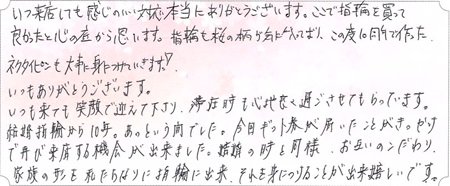 いつ来店しても感じのいい対応本当にありがとうございます。ここで指輪を買って
良かったと心の底から思います。指輪も桜の柄が気に入っており、この度10周年で作った
ネクタイピンも大事に身につけていきます♡
いつもありがとうございます。
いつも来ても笑顔で迎えて下さり、滞在時も心地よく過ごさせてもらっています。
結婚指輪から10年。あっという間でした。今回ギフト券が届いたことがきっかけ
で再び来店する機会が出来ました。結婚の時と同様、お互いのこだわり、
家族の形を私たちなりに指輪に出来、それを身につけることが出来嬉しいです。